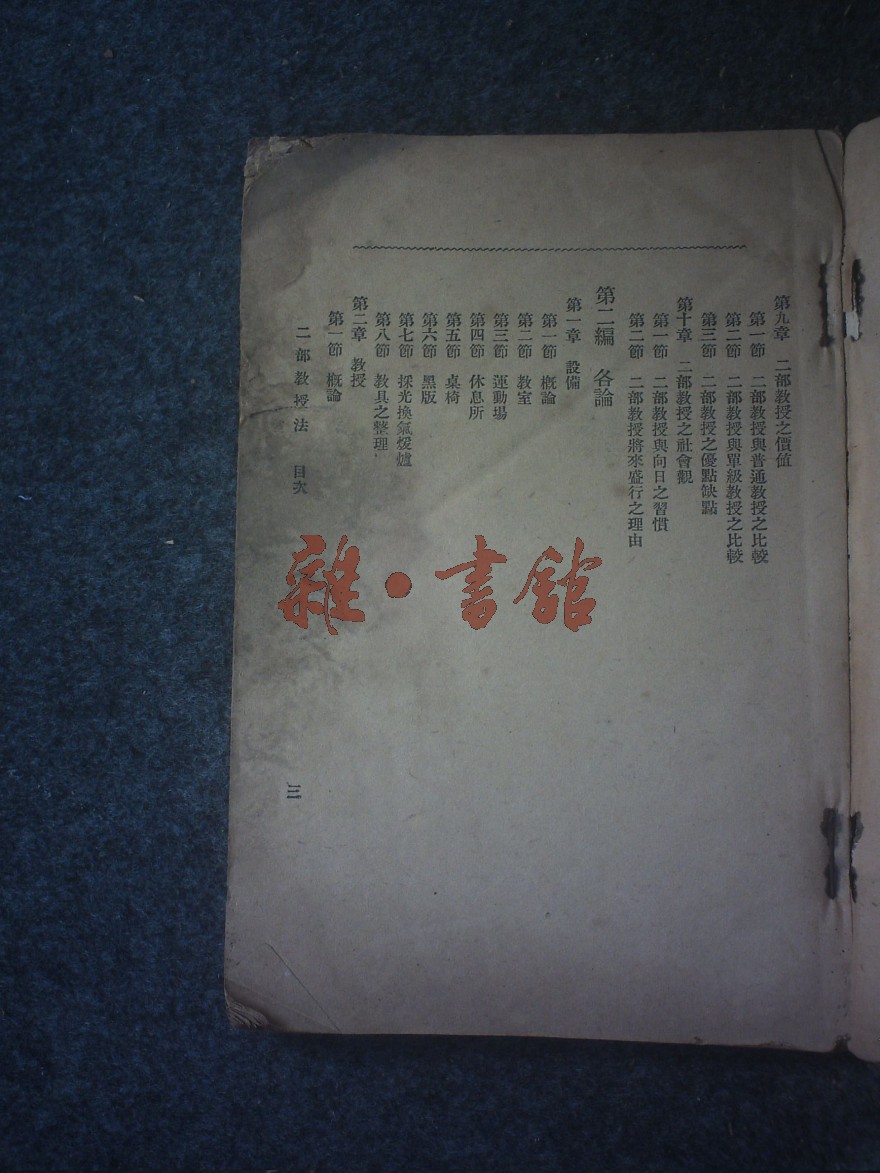 第九章 二部教授之價値
第一節 二部教授與普通教授之比較
第二節 二部教授與單級教授之比較
第三節 二部教授之優點缺點
第十章 二部教授之社會觀
第一節 二部教授與向日之習慣
第二節 二部教授將來盛行之理由
第二編 各論
第一章 設備
第一節 槪論
第二節 教室
第三節 運動場
第四節 休息所
第五節 桌椅
第六節 黑版
第七節 採光換氣煖爐
第八節 教具之整理
第二章 教授
第一節 槪論
二部教授法 目次
三
雜·書館